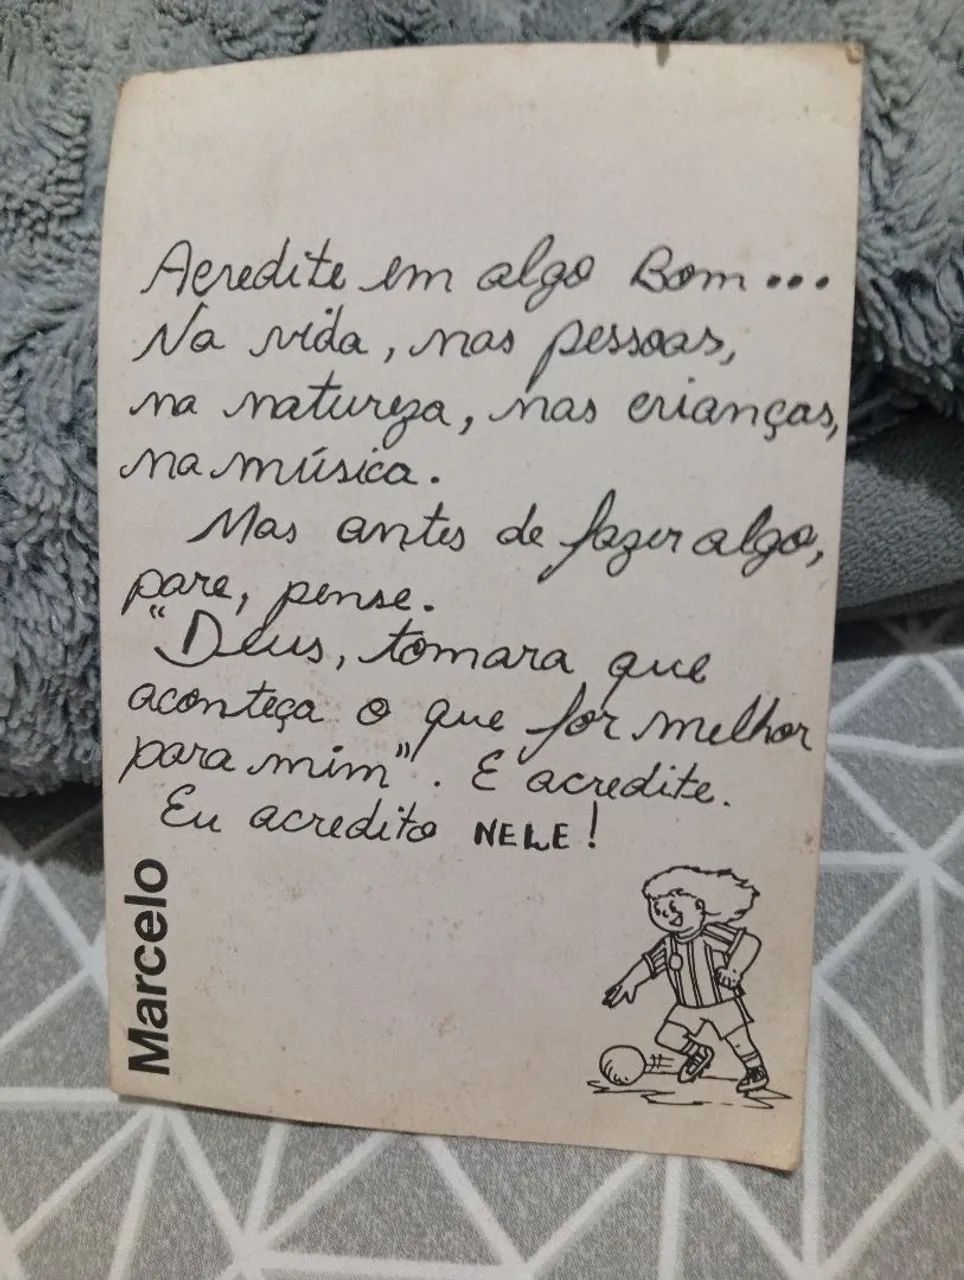 Acredite em algo Bom...
Na vida, nas pessoas,
na natureza, nas crianças,
na música.
Mas antes de fazer algo,
pare, pense.
"Deus, tomara que
aconteça o que for melhor
para mim". E acredite.
Eu acredito NELE!
Marcelo